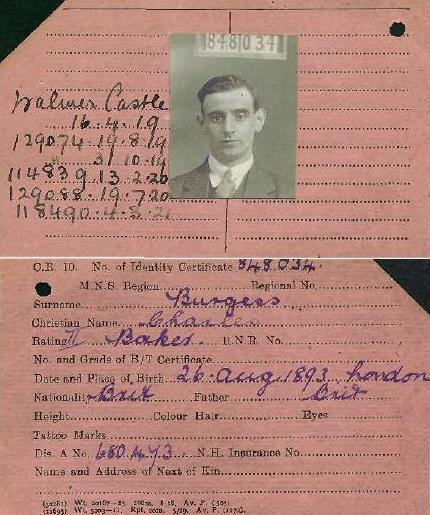 848034
Walmer Castle
16.4.19
129074 19.8.19
31 10.19
114839 13.2.20
129088.19.7.20
118490.4.5.2
C.R. 10. No. of Identity Certificate 848034
M.N.S. Region Regional No.
Surname Burgess
Christian Name Charles
Rating Baker. R.N.R. No.
No. and Grade of B/T Certificate
Date and Place of Birth 26 Aug 1893 London
Nationality Brit Father Brit
Height Colour Hair Eyes
Tattoo Marks
Dis. A No. 680473 N.H. Insurance No.
Name and Address of Next of Kin
Wt. 20167—25 100m. 8/18. Av. P.
Wt. 5209—11. Rpt. 5/19. Av. P.